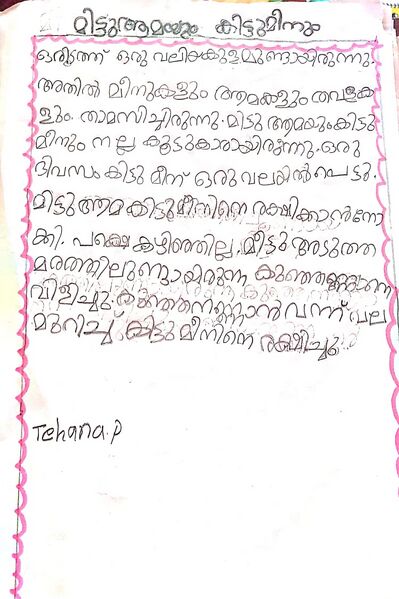 മിട്ടുആമയും കിട്ടുമീനും
ഒരിടത്ത് ഒരു വലിയകുളമുണ്ടായിരുന്നു.
അതിൽ മീനുകളും ആമകളും തവളക
ളും. താമസിച്ചിരുന്നു. മിട്ടു ആമയുംകിട്ടു
മീനും നല്ല കൂട്ടുകാരായിരുന്നു. ഒരു
ദിവസം കിട്ടു മീന് ഒരു വലയിൽപെട്ടു.
മിട്ടു ആമ കിട്ടുമീനിനെ രക്ഷിക്കാൻനോ
ക്കി. പക്ഷെകഴിഞ്ഞില്ല. മീട്ടു അടുത്ത
മരത്തിലുണ്ടായിരുന്ന കുഞ്ഞണ്ണാനെ
വിളിച്ചു. കുഞ്ഞനണ്ണാൻ വന്ന് വല
മുറിച്ച് കിട്ടു മീനിനെ രക്ഷിച്ചു.
Tehana.P